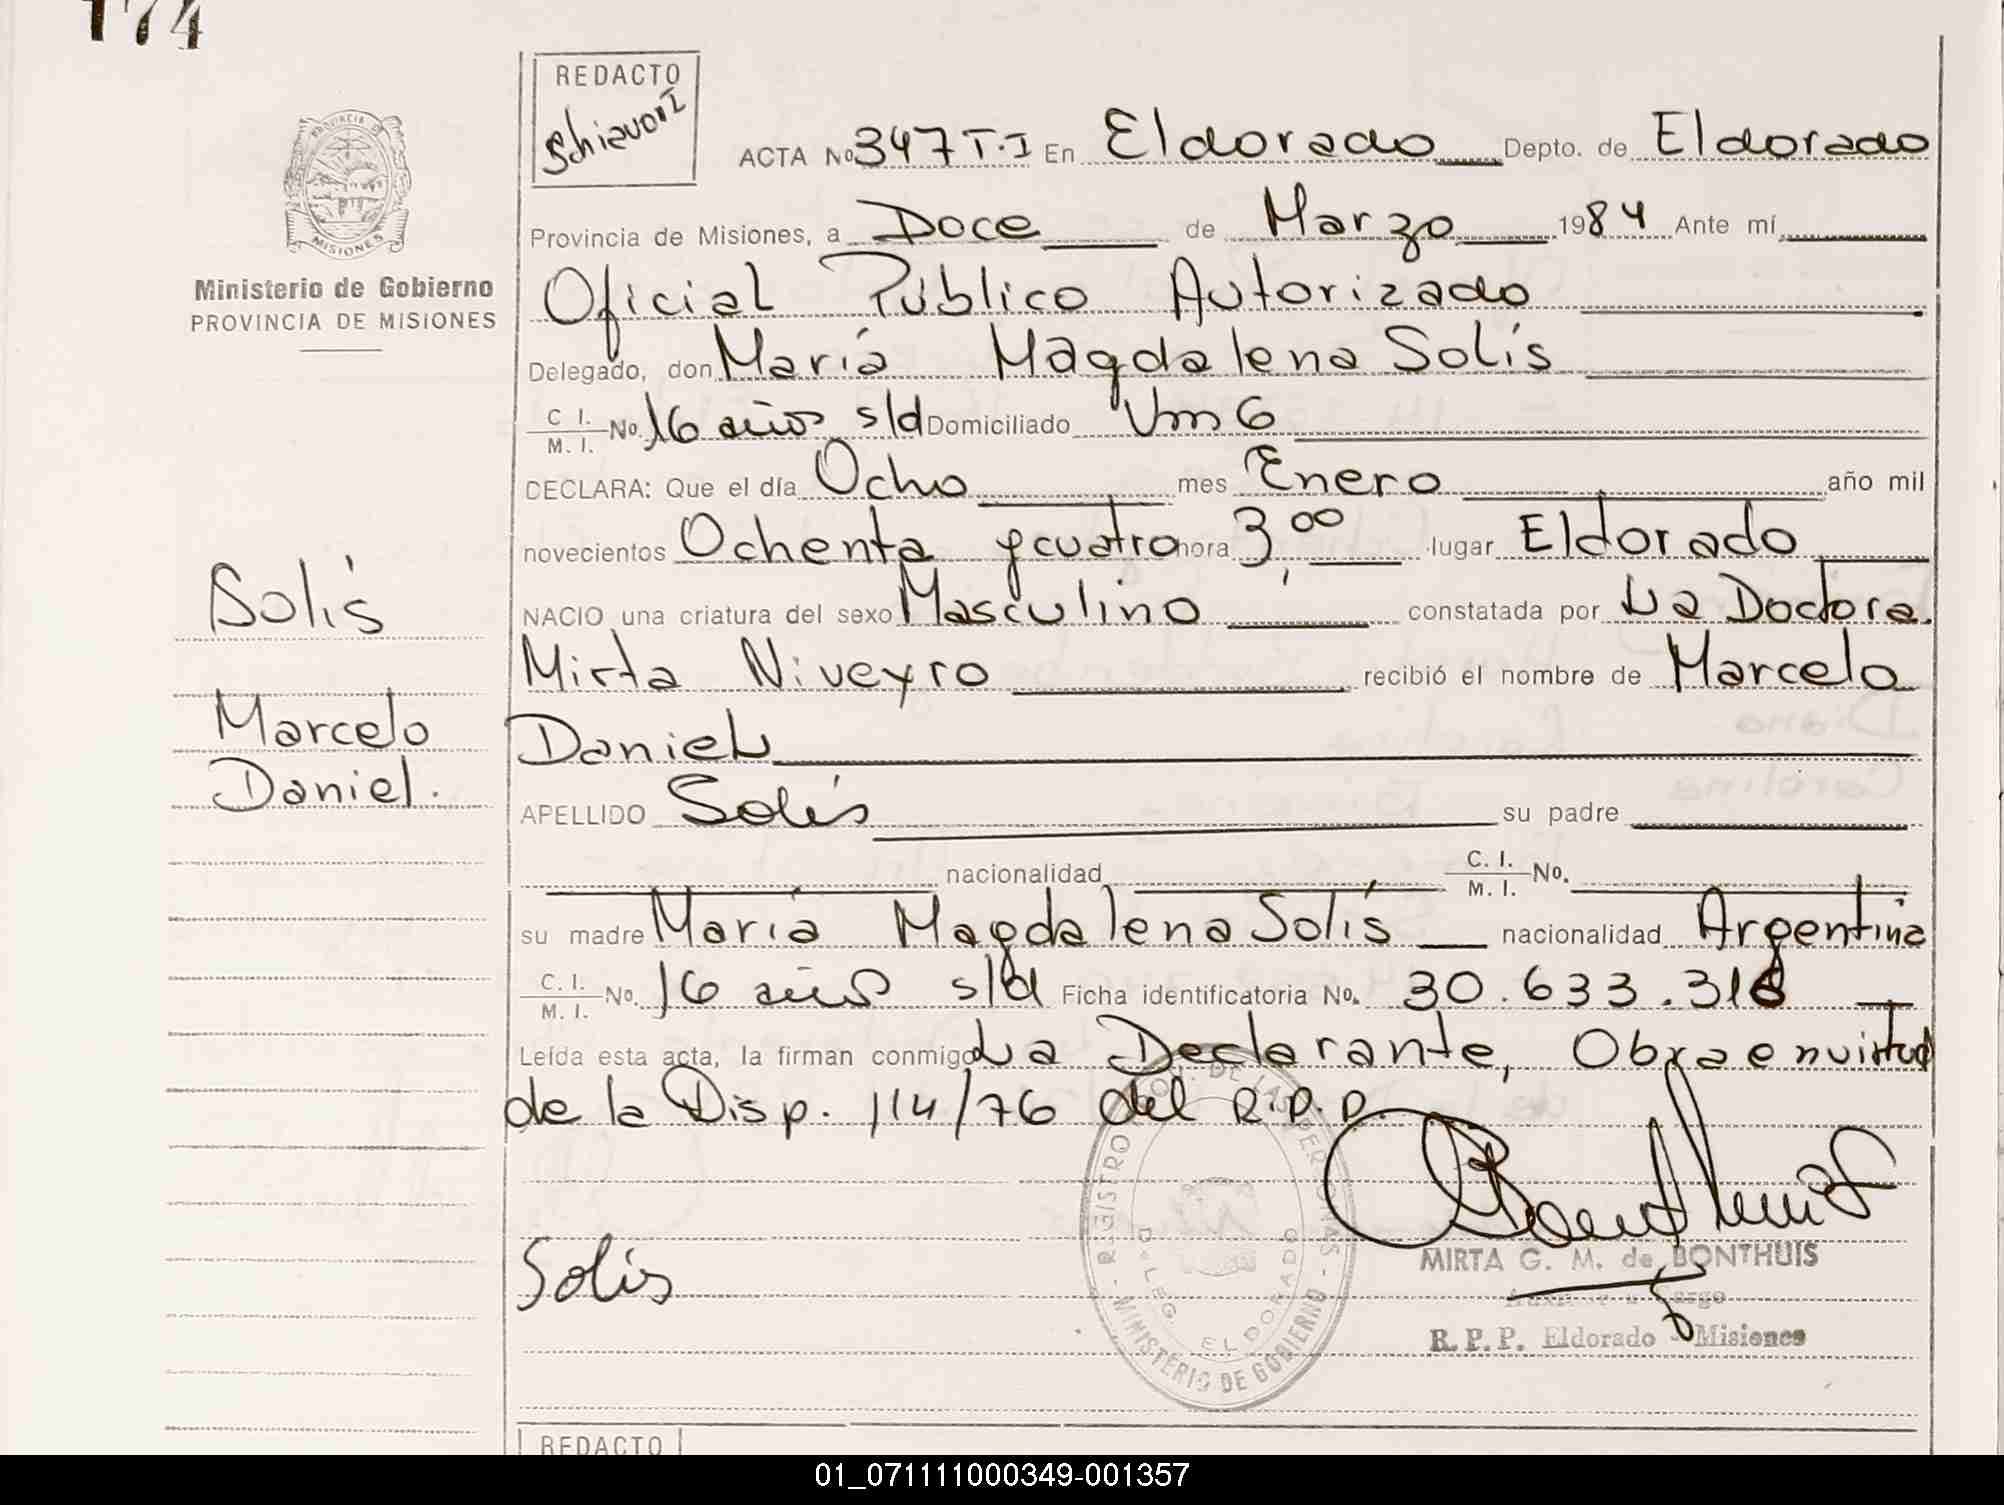 174
REDACTO
Schiavoni
ACTA No 347 T.I En Eldorado Depto. de Eldorado
Provincia de Misiones, a Doce de Marzo 1984 Ante mí
Ministerio de Gobierno
PROVINCIA DE MISIONES
Oficial Público Autorizado
Delegado, don María Magdalena Solís
C. I. / M. I. No. 16 años s/d Domiciliado Km 6
DECLARA: Que el día Ocho mes Enero año mil
novecientos Ochenta y cuatro hora 3,00 lugar Eldorado
NACIO una criatura del sexo Masculino constatada por La Doctora
Mirta Niveyro recibió el nombre de Marcelo
Daniel
APELLIDO Solís su padre
nacionalidad C. I. / M. I. No.
su madre María Magdalena Solís nacionalidad Argentina
C. I. / M. I. No. 16 años s/d Ficha identificatoria No. 30.633.316
Leída esta acta, la firman conmigo La Declarante, Obra en virtud
de la Disp. 114/76 del R.P.P.
Solís
Marcelo
Daniel.
Solís
REGISTRO PROV. DE LAS PERSONAS
MINISTERIO DE GOBIERNO
DELEG. ELDORADO
MIRTA G. M. de BONTHUIS
Auxiliar a Cargo
R. P. P. Eldorado - Misiones
REDACTO
01_071111000349-001357